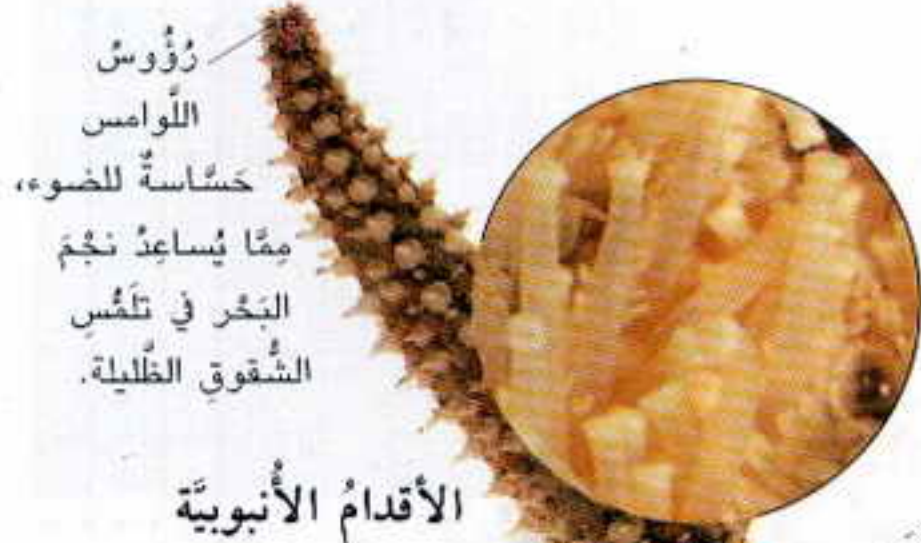 رُؤُوسُ
اللَّوامس
حَسَّاسةٌ للضوء،
مِمَّا يُساعِدُ نجْمَ
البَحْر في تلَمُّسِ
الشُّقوقِ الظَّليلة.
الأقدامُ الأُنبوبيَّة